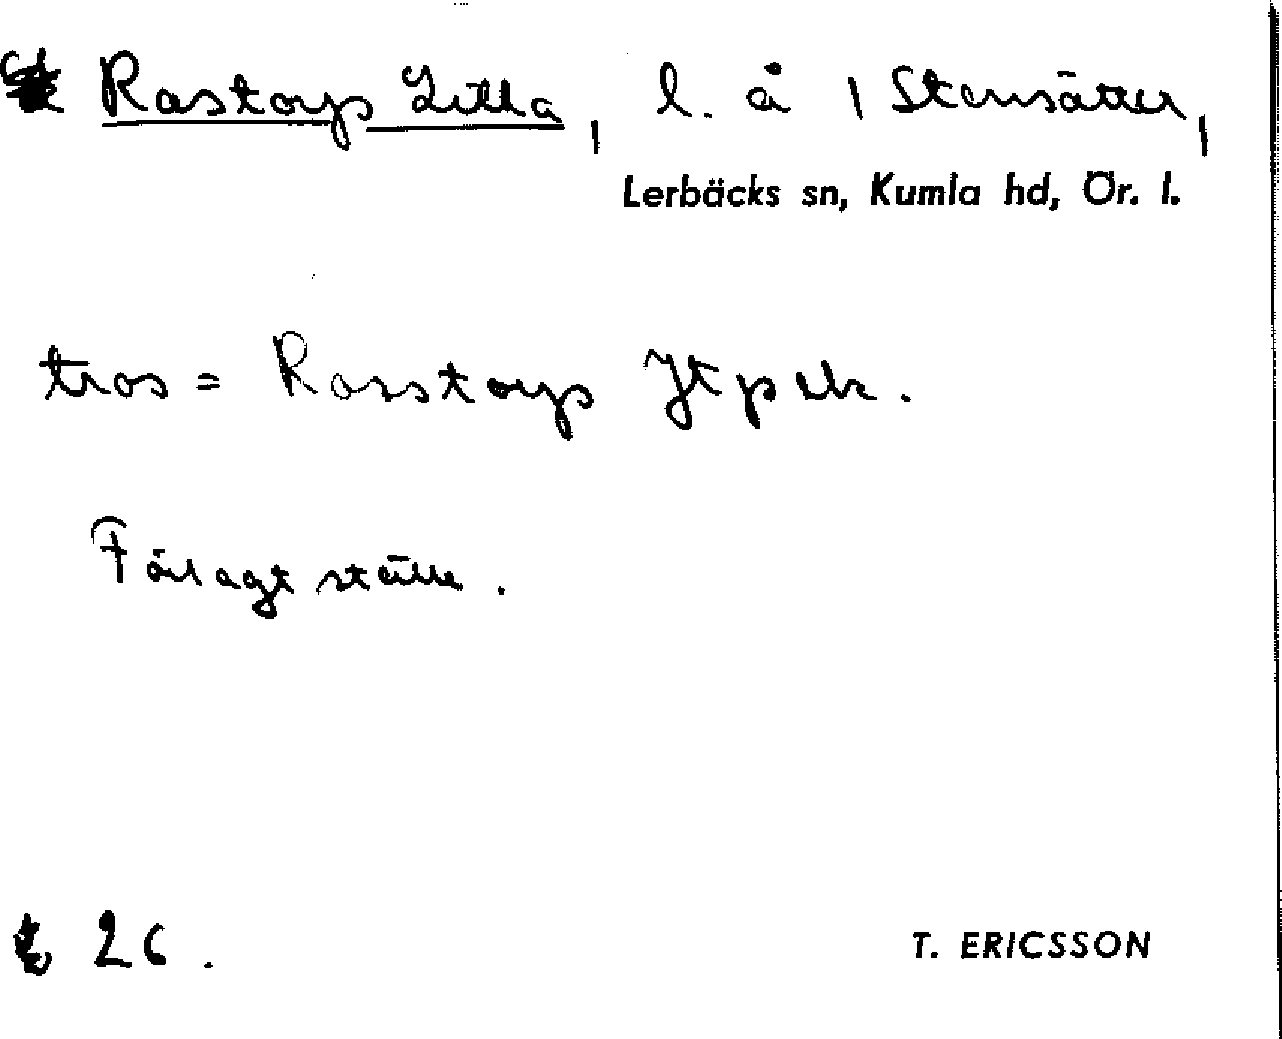 Rastorps Lilla, l. å 1 Stensätter,
Lerbäcks sn, Kumla hd, Ör. l.
tros = Rasstorps Jtp
Förlagt ställe.
26.
T. ERICSSON